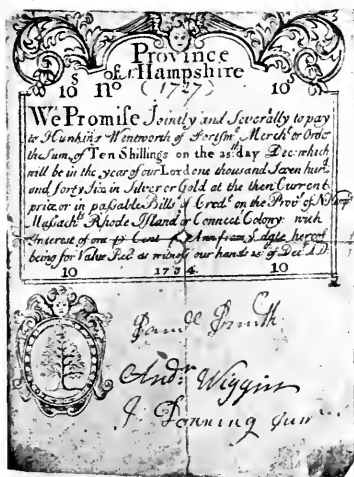 Province
of N Hampshire
10 S No (1727) 10 S
We Promise Jointly and Severally to pay
to Hunking Wentworth of Portsmo Mercht or Order
the Sum of Ten Shillings on the 25th day Decr which
will be in the year of our Lord one thousand Seven hund
and forty Six in Silver or Gold at the then Current
price or in passable Bills of Credt on the Prove of N Hamp
Massachts Rhode Island or Connect Colony with
Interest of one p Cent p Annum from ye date hereof
being for Value Recd as witness our hands 25th of Decr A.D.
10 1734. 10
Smith
Andr Wiggin
J Downing Junr